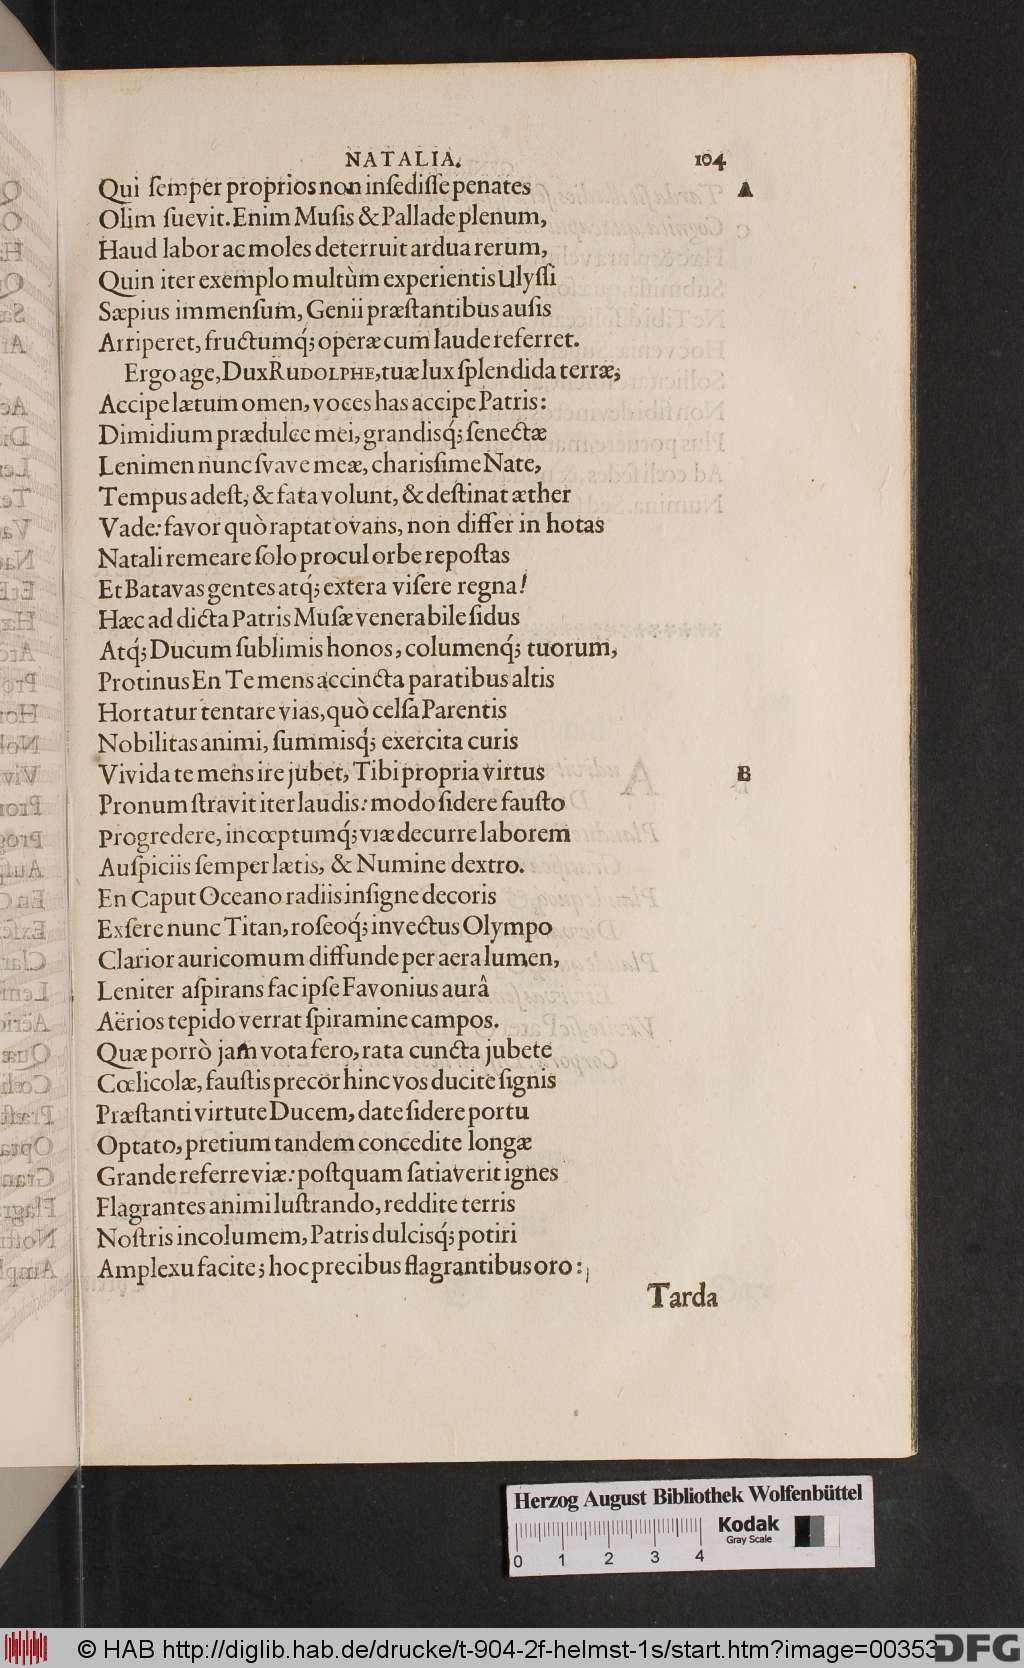 NATALIA. 104
Qui ſemper proprios non inſediſſe penates A
Olim ſuevit. Enim Muſis & Pallade plenum,
Haud labor ac moles deterruit ardua rerum,
Quin iter exemplo multùm experientis Ulyſſi
Sæpius immenſum, Genii præſtantibus auſis
Arriperet, fructumq́; operæ cum laude referret.
Ergo age, Dux RUDOLPHE, tuæ lux ſplendida terræ;
Accipe lætum omen, voces has accipe Patris:
Dimidium prædulce mei, grandisq́; ſenectæ
Lenimen nunc ſvave meæ, charisſime Nate,
Tempus adeſt, & fata volunt, & deſtinat æther
Vade: favor quò raptat ovans, non differ in hotas
Natali remeare ſolo procul orbe repoſtas
Et Batavas gentes atq́; extera viſere regna!
Hæc ad dicta Patris Muſæ venerabile ſidus
Atq́; Ducum ſublimis honos, columenq́; tuorum,
Protinus En Te mens accincta paratibus altis
Hortatur tentare vias, quò celſa Parentis
Nobilitas animi, ſummisq́; exercita curis
Vivida te mens ire jubet, Tibi propria virtus B
Pronum ſtravit iter laudis: modo ſidere fauſto
Progredere, incœptumq́; viæ decurre laborem
Auſpiciis ſemper lætis, & Numine dextro.
En Caput Oceano radiis inſigne decoris
Exſere nunc Titan, roſeoq́; invectus Olympo
Clarior auricomum diffunde per aera lumen,
Leniter aſpirans fac ipſe Favonius aurâ
Aërios tepido verrat ſpiramine campos.
Quæ porrò jam vota fero, rata cuncta jubete
Cœlicolæ, fauſtis precor hinc vos ducite ſignis
Præſtanti virtute Ducem, date ſidere portu
Optato, pretium tandem concedite longæ
Grande referre viæ: poſtquam ſatiaverit ignes
Flagrantes animi luſtrando, reddite terris
Noſtris incolumem, Patris dulcisq́; potiri
Amplexu facite; hoc precibus flagrantibus oro:
Tarda
Herzog August Bibliothek Wolfenbüttel
Kodak
Gray Scale
0 1 2 3 4
© HAB http://diglib.hab.de/drucke/t-904-2f-helmst-1s/start.htm?image=00353
DFG